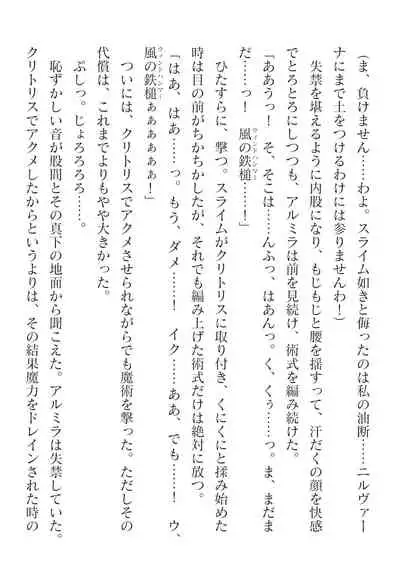 （ま、負けません……わよ。スライム如きと侮ったのは私の油断……ニルヴァー
ナにまで土をつけるわけには参りませんわ！）
失禁を堪えるように内股になり、もじもじと腰を揺すって、汗だくの顔を快感
でとろとろにしつつも、アルミラは前を見続け、術式を編み続けた。
「ああうっ！　そ、そこは……んふっ、はあんっ。く、くぅ……っ。ま、まだま
だ……っ！　風の鉄槌……！」
ウィンドハンマー
ひたすらに、撃つ。スライムがクリトリスに取り付き、くにくにと揉み始めた
時は目の前がちかちかしたが、それでも編み上げた術式だけは絶対に放つ。
「はあ、はあ……っ。もう、ダメ……！　イク……ああ、でも……！　ウ、
風の鉄槌ぁぁぁぁぁぁ！」
ウィンドハンマー
ついには、クリトリスでアクメさせられながらでも魔術を撃った。ただしその
代償は、これまでよりもやや大きかった。
ぷしっ。じょろろろろ……。
恥ずかしい音が股間とその真下の地面から聞こえた。アルミラは失禁していた。
クリトリスでアクメしたからというよりは、その結果魔力をドレインされた時の